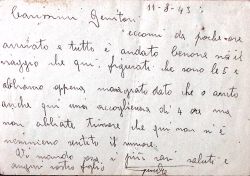 11-8-43
Carissimi Genitori
eccomi da poche ore
arrivato e tutto è andato benone sia il
viaggio che qui. figurati che sono le 5 e
abbiamo appena mangiato dato che o avuto
anche qui una accoglienza di 4 ore ma
non abbiate timore che qui non vi è
nemmeno sentito il rumore.
Vi mando ora i più cari saluti e
auguri vostro figlio